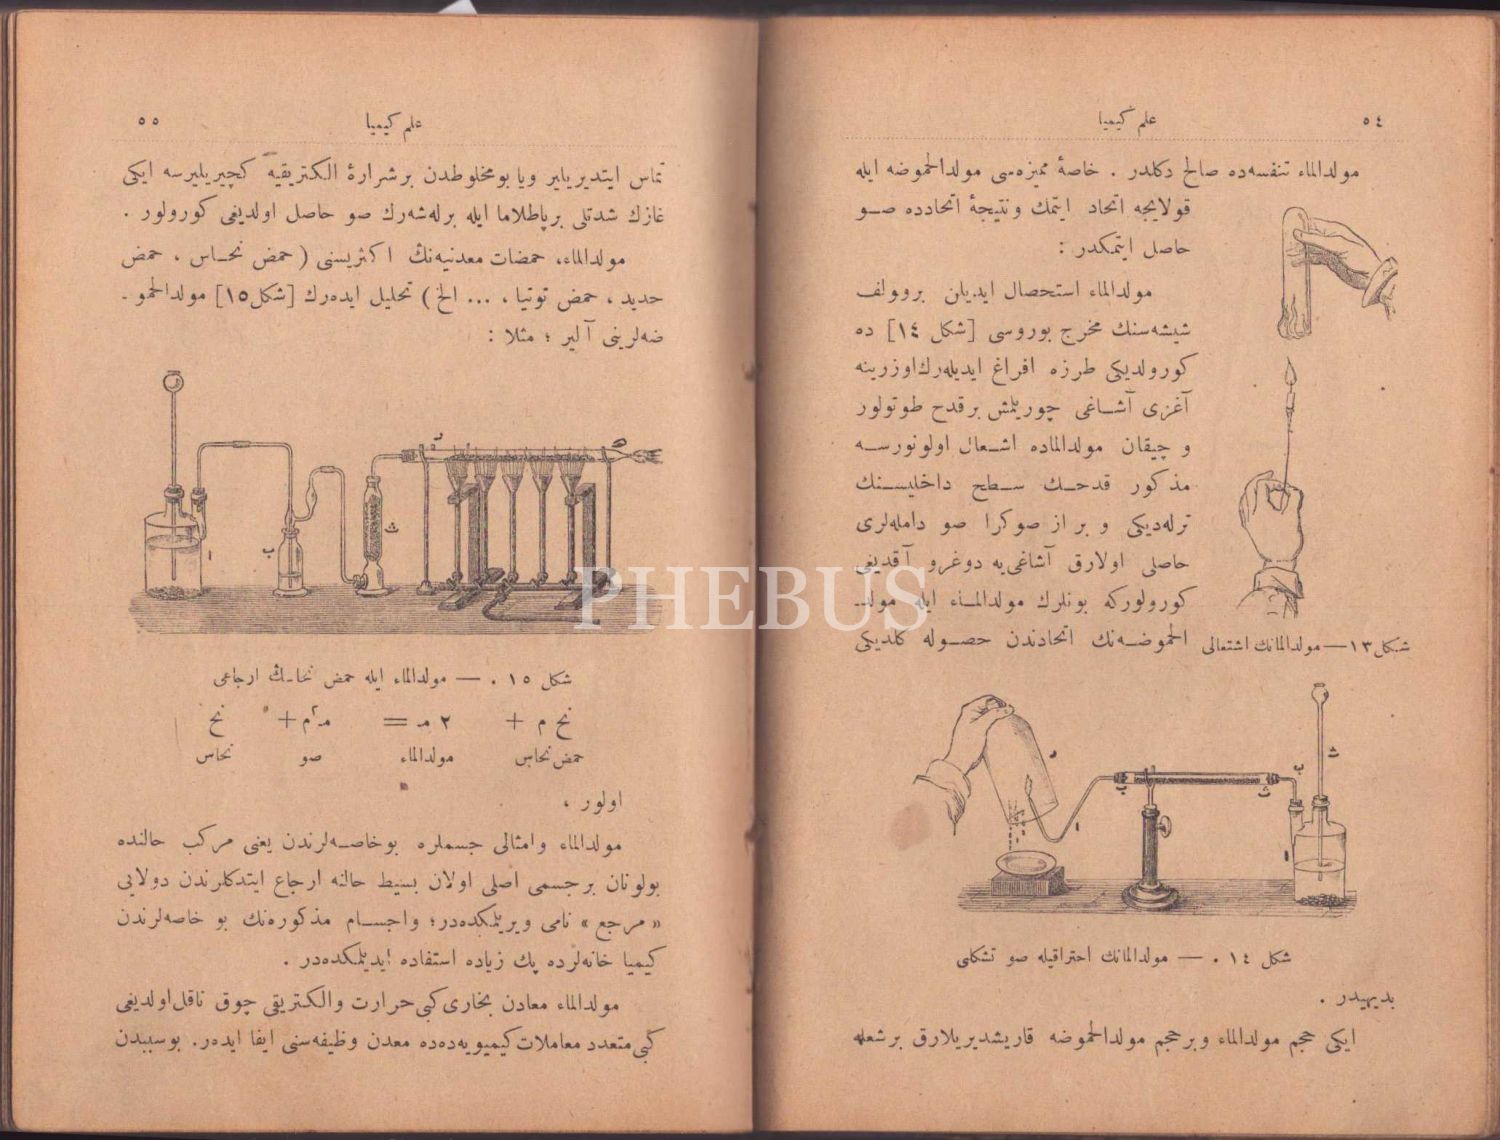 ٥٤
علم كيميا
مولدالماء تنفسه‌ده صالح دكلدر . خاصهٔ مميزه‌سی مولدالحموضه ايله
قولايجه اتحاد ايتمك ونتيجهٔ اتحادده صو
حاصل ايتمكدر :
مولدالماء استحصال ايديلن بروولف
شيشه‌سنك مخرج بوروسی [شكل ١٤] ده
كورولديكی طرزه افراغ ايديله‌رك اوزرينه
آغزی آشاغی چوريلمش برقدح طوتولور
و چيقان مولدالماده اشعال اولونورسه
مذكور قدحك سطح داخليسنك
ترله‌ديكی و بر از صوكرا صو دامله‌لری
حاصل اولارق آشاغی‌يه دوغرو آقديغی
كورولوركه بونلرك مولدالماء ايله مولد‌
الحموضه‌نك اتحادندن حصوله كلديكی
شكل ١٣ — مولدالمانك اشتعالی
ث
ب
ث
ب
ا
ا
شكل ١٤ . — مولدالمانك احتراقيله صو تشكلی
بديهيدر .
ايكی حجم مولدالماء وبرحجم مولدالحموضه قاريشديريلارق برشعله
٥٥
علم كيميا
تماس ايتديريلير ويا بومخلوطدن برشرارهٔ الكتريقيه كچيريليرسه ايكی
غازك شدتلی برپاطلاما ايله برله‌شه‌رك صو حاصل اولديغی كورولور .
مولدالماء، حمضات معدنيه‌نك اكثريسنی ( حمض نحاس ، حمض
حديد ، حمض توتيا ، ... الخ ) تحليل ايده‌رك [شكل ١٥] مولدالحمو-
ضه‌لرينی آلير ؛ مثلا :
ا
ب
ث
شكل ١٥ . — مولدالماء ايله حمض نحاسك ارجاعی
نح م + ٢ مـ = مـ٢م + نح
حمض نحاس مولدالماء صو نحاس
اولور ،
مولدالماء وامثالی جسملره بوخاصه‌لرندن يعنی مركب حالنده
بولونان برجسمی اصلی اولان بسيط حالنه ارجاع ايتدكلرندن دولايی
« مرجع » نامی ويريلمكده‌در؛ واجسام مذكوره‌نك بو خاصه‌لرندن
كيميا خانه‌لرده پك زياده استفاده ايديلمكده‌در .
مولدالماء معادن بخاری كبی حرارت والكتريقی چوق ناقل اولديغی
كبی متعدد معاملات كيميويه‌ده‌ده معدن وظيفه‌سنی ايفا ايده‌ر. بوسببدن
PHEBUS